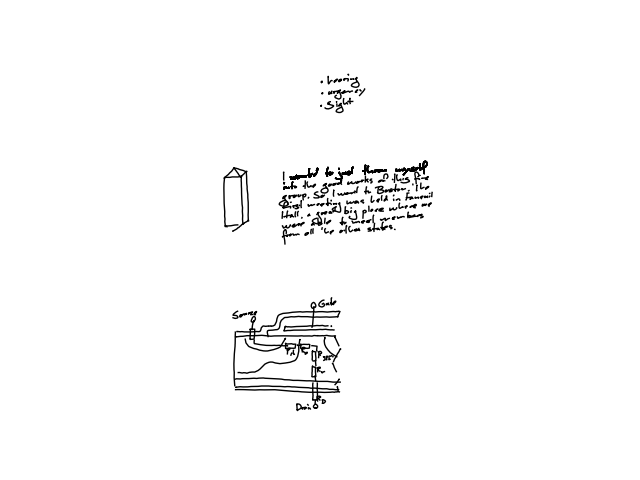 • hearing
• urgency
• Sight
I wanted to just throw myself
into the good works of this fine
group. So I went to Boston. The
first meeting was held in Faneuil
Hall, a great big place where we
were able to meet members
from all the other states.
Source
Gate
Drain